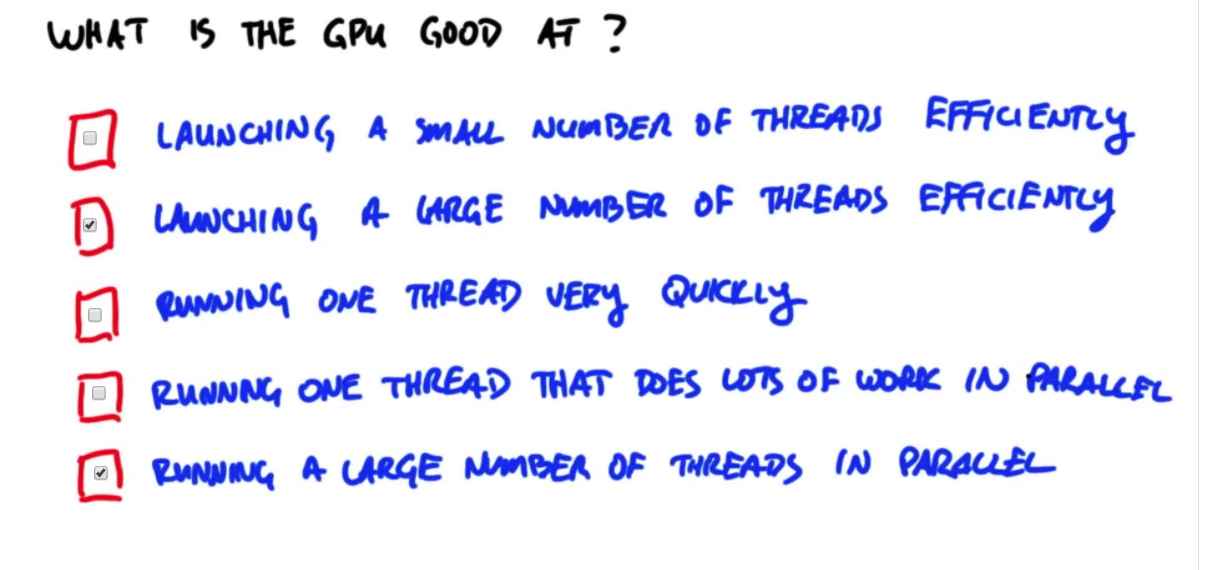 WHAT IS THE GPU GOOD AT ?
LAUNCHING A SMALL NUMBER OF THREADS EFFICIENTLY
LAUNCHING A LARGE NUMBER OF THREADS EFFICIENTLY
RUNNING ONE THREAD VERY QUICKLY
RUNNING ONE THREAD THAT DOES LOTS OF WORK IN PARALLEL
RUNNING A LARGE NUMBER OF THREADS IN PARALLEL